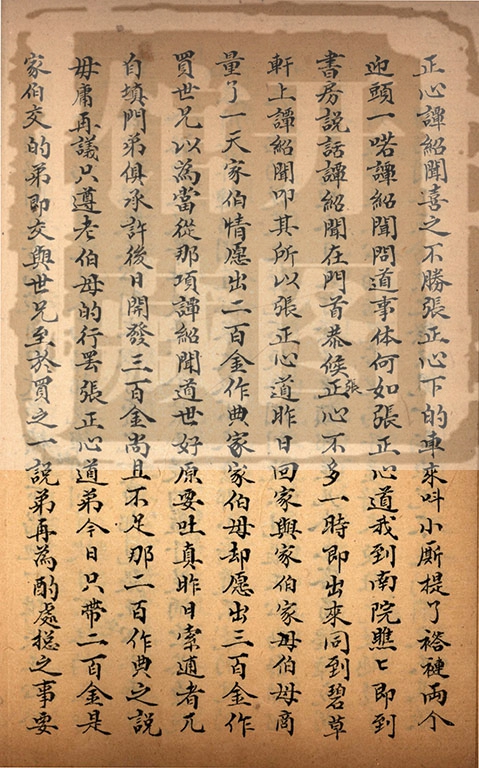 正心譚紹聞喜之不勝張正心下的車來叫小厮提了褡褳兩个
迎頭一喏譚紹聞問道事体何如張正心道我到南院瞧ヒ即到
書房説話譚紹聞在門首恭候張正心不多一時即出來同到碧草
軒上譚紹聞叩其所以張正心道昨日回家與家伯家母伯母商
量了一天家伯情愿出二百金作典家家伯母却愿出三百金作
買世兄以為當從那項譚紹聞道世好原要吐真昨日索逋者兀
自填門弟俱承許後日開發三百金尚且不足那二百作典之説
毋庸再議只遵老伯母的行罢張正心道弟今日只帶二百金是
家伯交的弟即交與世兄至於買之一説弟再為酌處揔之事要